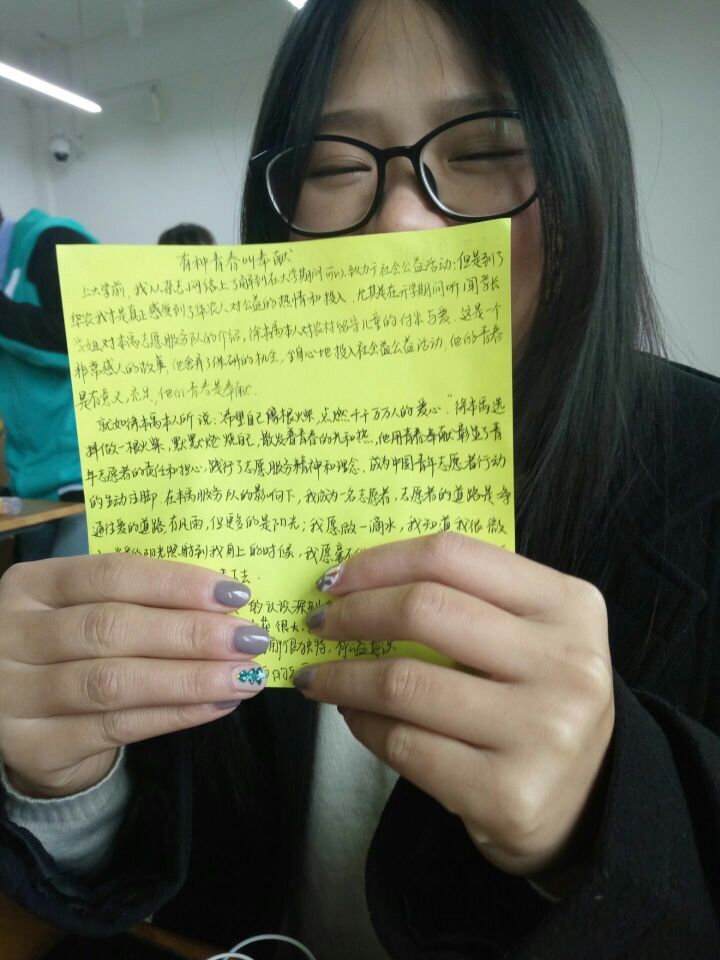 有种青春叫奉献
上大学前,我从报志网络上了解到在大学期间可以致力于社会公益活动;但是到了
华农我才是真正感受到了华农人对公益的热情和投入,尤其是在开学期间听闻学长
学姐对本禹志愿服务队的介绍,徐本禹本人对农村留守儿童的付出与爱.这是一个
非常感人的故事,他舍弃了保研的机会,全身心地投入社会公益活动,他的青春
是有意义,充足,他的青春是奉献.
就如徐本禹本人所说:"希望自己像根火柴,点燃千千万万人的爱心."徐本禹选
择做一根火柴,默默燃烧自己,散发着青春的光和热,他用青春奉献彰显了青
年志愿者的责任和担心,践行了志愿服务精神和理念,成为中国青年志愿者行动
的生动注脚.在本禹服务队的影响下,我成为一名志愿者,志愿者的道路是
通往爱的道路,有风雨,但更多的是阳光;我愿做一滴水,我知道我很微
的阳光照射到我身上的时候,我愿毫不
去.
的议论深刻
很大,
前很独特,
的